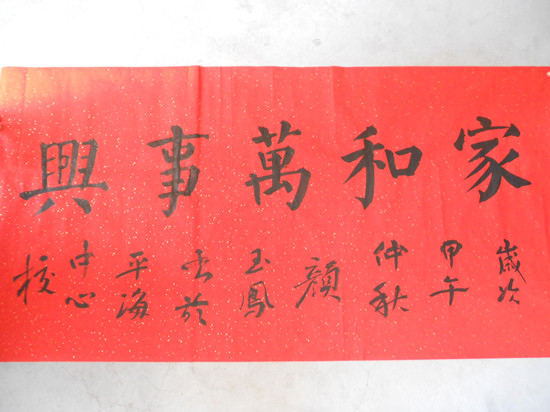 家和萬事興
歲次
甲午
仲秋
顏
玉鳳
书於
平海
中心
校